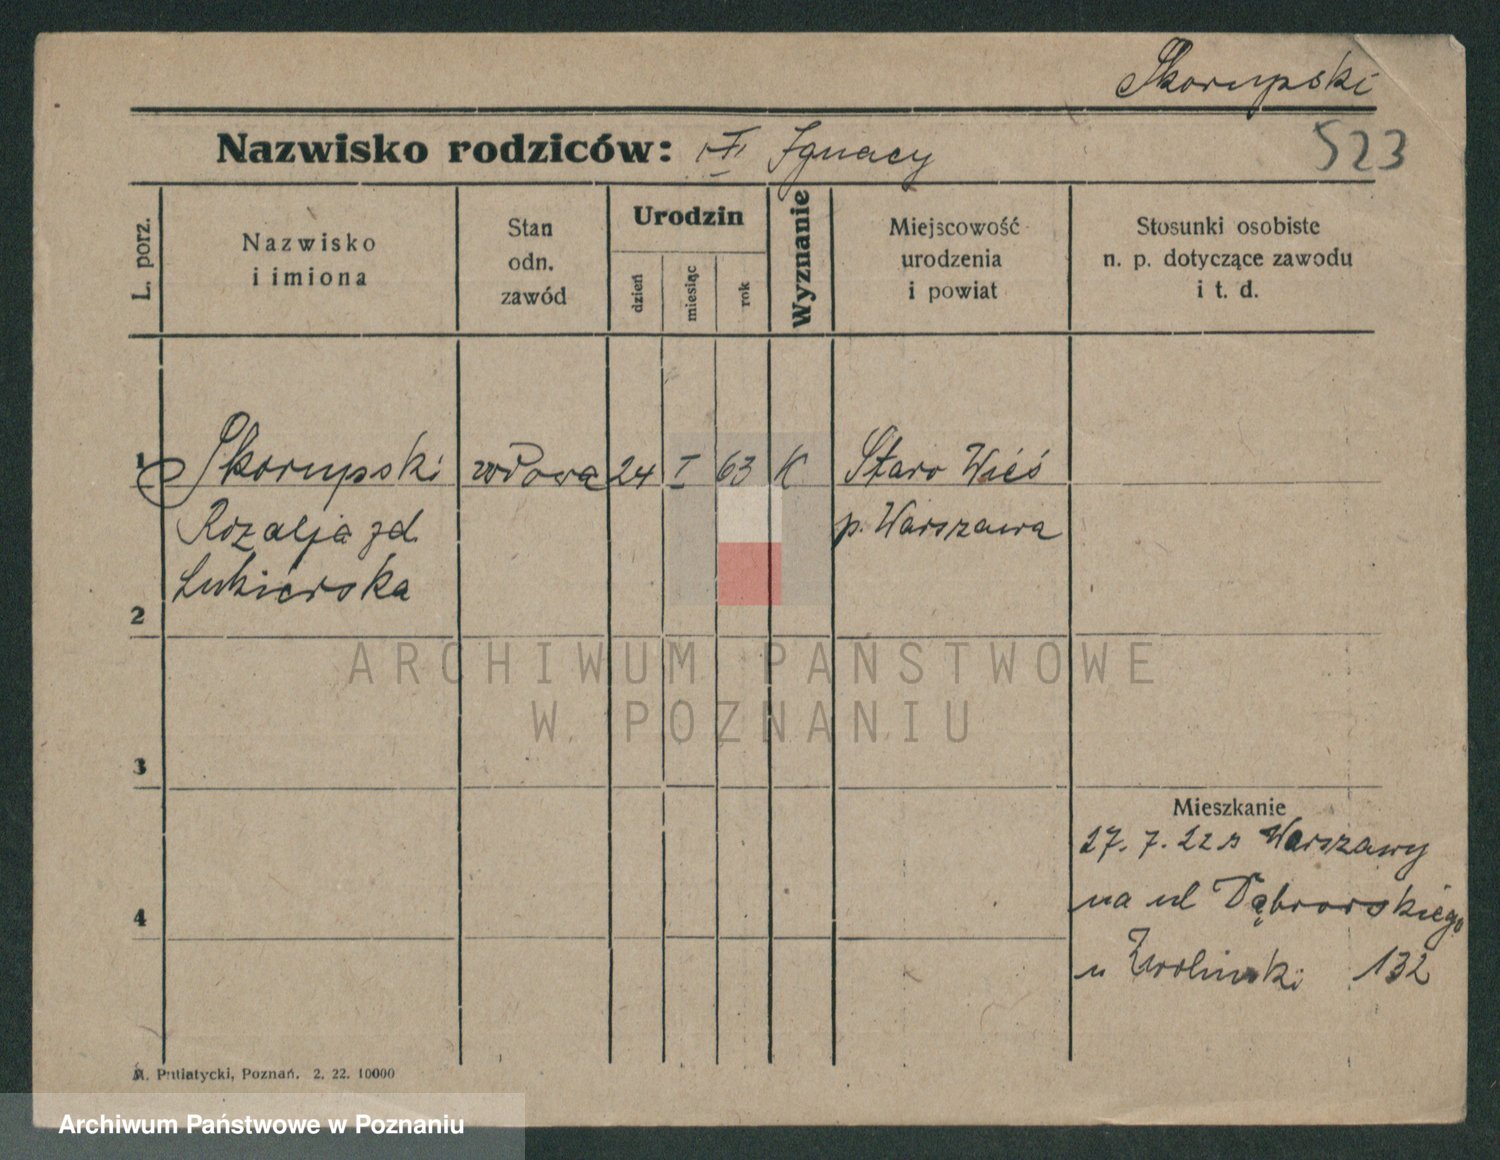 Skorupski
Nazwisko rodziców: Ignacy
523
L. porz.
Nazwisko
i imiona
Stan
odn.
zawód
Urodzin
dzień
miesiąc
rok
Wyznanie
Miejscowość
urodzenia
i powiat
Stosunki osobiste
n. p. dotyczące zawodu
i t. d.
1 Skorupski wdowa 24 I 63 K Staro Wieś
Rozalja zd. p. Warszawa
Lukierska
2
ARCHIWUM PAŃSTWOWE
W POZNANIU
3
Mieszkanie
27. 7. 22 z Warszawy
4
na ul Dąbrowskiego
u Zwolinski 132
A. Putiatycki, Poznań. 2. 22. 10000
Archiwum Państwowe w Poznaniu